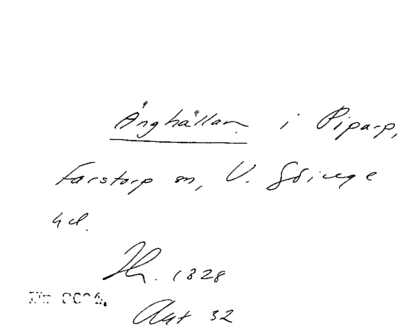 Änghällan i Piparp,
Farstorp sn, V. Göinge
hd.
1828
Akt 32